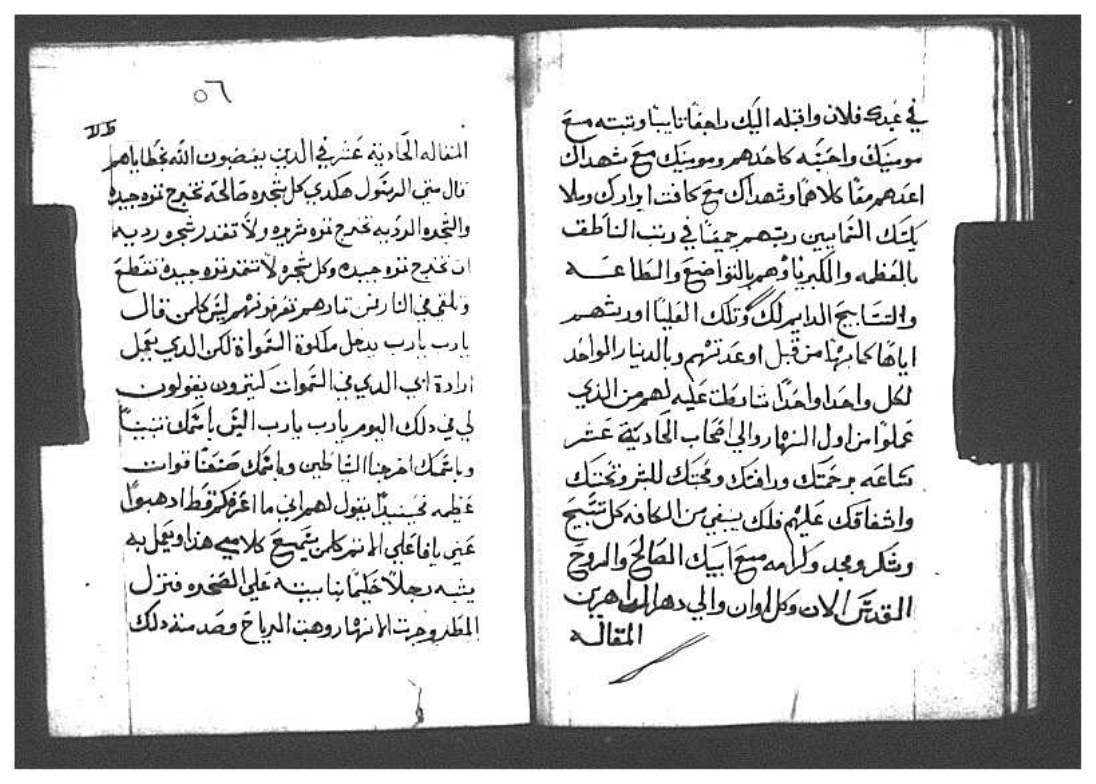 في عبدك فلان واقبله اليك راجعًا تايبًا وتبته مع
مومنيك واحبّه كاحدهم ومومنيك مع شهداك
اعدهم معًا كلاهما وشهداك مع كافت ابرارك وملا
يكتك السمايين رتبهم جميعًا في رتب الناطقـ
بالعظمه والكبريا وهم بالتواضع والطاعـــه
والتسابيح الدايم لك وتلك العليا اورثهم
اياها كما بها من قبل اوعدتهم وبالدينار الواحد
لكل واحدا واحدًا شارطت عليه لهم من الذي
عملوا من اول النهار والي اصحاب الحادية عشر
ساعه برحمتك ورافتك ومحبتك للبشر وتحننك
واشفاقك عليهم فلك ينبغي من الكافه كل تسبيح
وشكر ومجد وكرامه مع ابيك الصالح والروح
القدس الان وكل اوان والي دهر الداهرين
المقاله
٥٦
المقاله الحادية عشر في الدين يغضبون الله بخطاياهم
قال متي الرسول هكدي كل شجره صالحة تخرج تمره جيده
والشجره الرديه تخرج تمره شريره ولا تقدر شجره رديه
ان تخرج تمره جيده وكل شجره لا تتمر تمره جيدة تقطع
وتلقي في النار من تمارهم تعرفونهم ليس كلمن قال
يارب يارب يدخل ملكوة السمواة لكن الدي يعمل
ارادة ابي الدي في السموات كتيرون يقولون
لي في دلك اليوم يارب يارب اليس باسمك تنبينا
وباسمك اخرجنا الشياطين وباسمك صنعنا قوات
عظيمه فحينيدًا يقول لهم اني ما اعرفكم قط ادهبوا
عني يافاعلي الاتم كلمن يسمع كلامي هذا ويعمل به
يشبه رجلًا حكيمًا بنا بيته علي الصخره فنزل
المطر وجرت الانهار وهبت الرياح وصدمت دلك